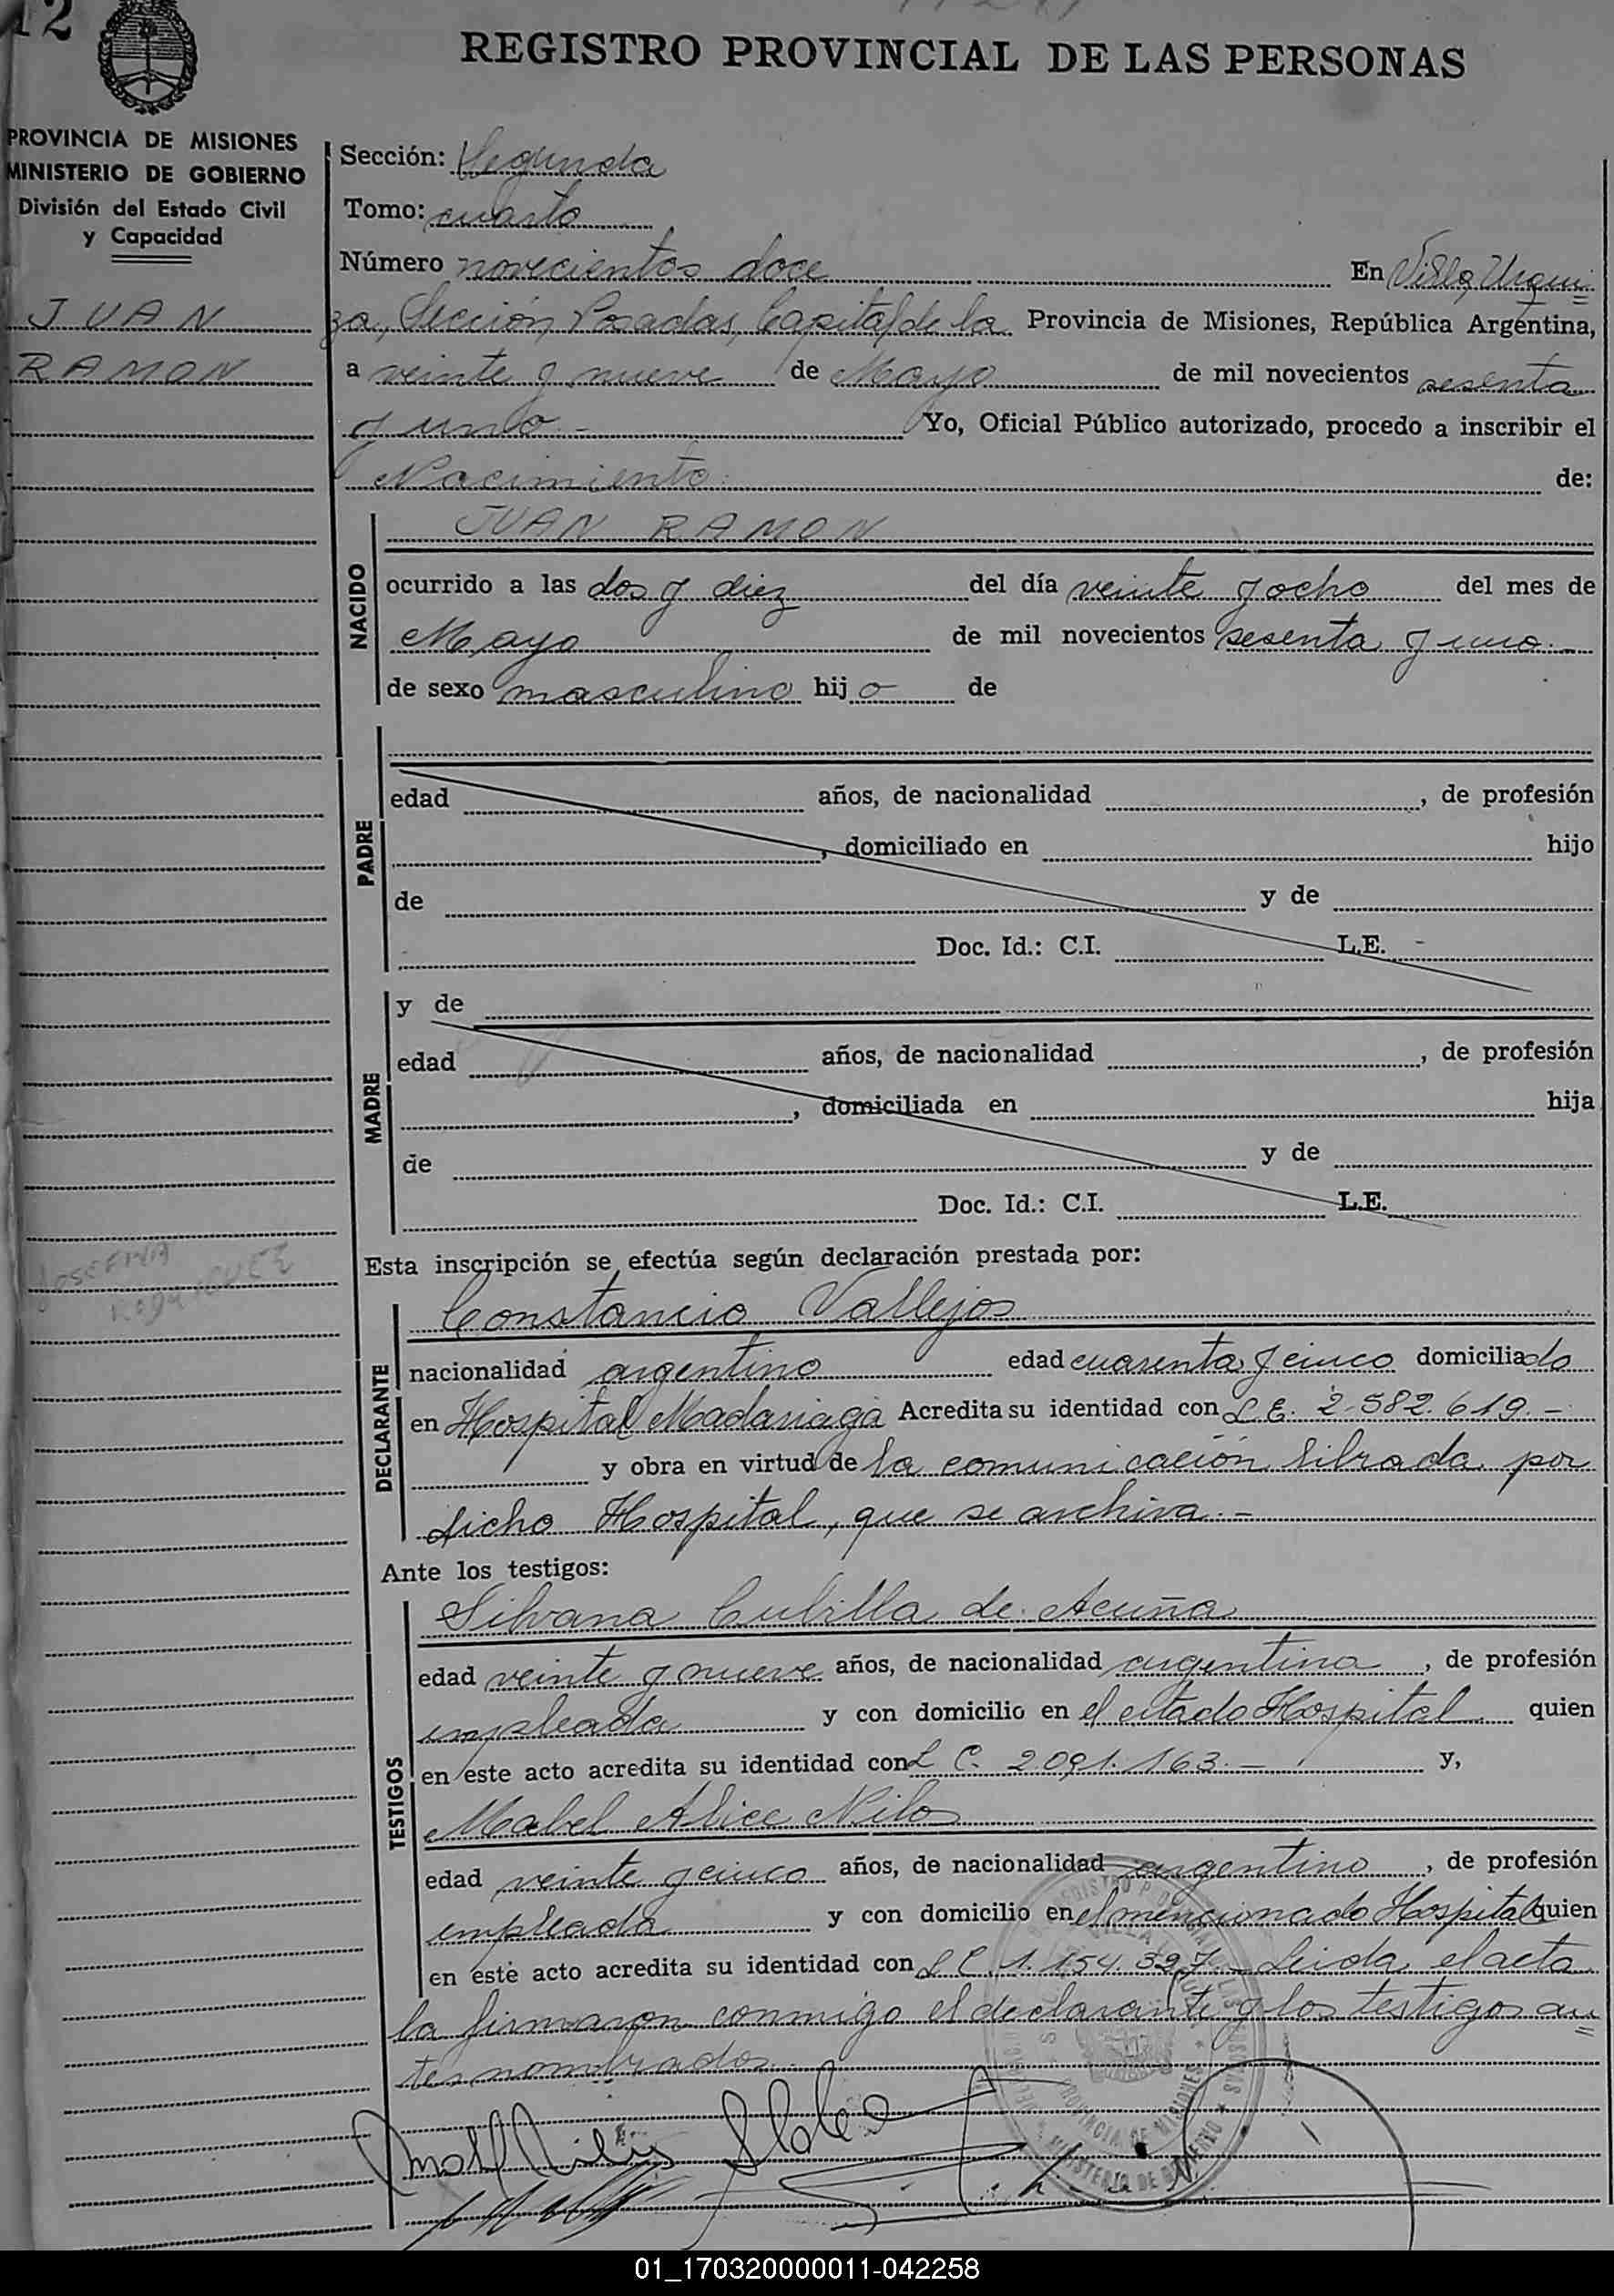 12
REGISTRO PROVINCIAL DE LAS PERSONAS
PROVINCIA DE MISIONES
MINISTERIO DE GOBIERNO
División del Estado Civil
y Capacidad
JUAN
RAMON
Sección: Segunda
Tomo: cuarto
Número novecientos doce En Villa Urqui
za, Sección Posadas, Capital de la Provincia de Misiones, República Argentina,
a veinte y nueve de Mayo de mil novecientos sesenta
y uno.- Yo, Oficial Público autorizado, procedo a inscribir el
Nacimiento de:
NACIDO
JUAN RAMON
ocurrido a las dos y diez del día veinte y ocho del mes de
Mayo de mil novecientos sesenta y uno.-
de sexo masculino hijo de
PADRE
edad años, de nacionalidad , de profesión
, domiciliado en hijo
de y de
Doc. Id.: C.I. L.E. -
MADRE
y de
edad años, de nacionalidad , de profesión
, domiciliada en hija
de y de
Doc. Id.: C.I. L.E.
JOSEFINA
Esta inscripción se efectúa según declaración prestada por:
DECLARANTE
Constancio Vallejos
nacionalidad argentino edad cuarenta y cinco domiciliado
en Hospital Madariaga Acredita su identidad con L.E. 2.582.619.-
y obra en virtud de la comunicación librada por
dicho Hospital, que se archiva.-
Ante los testigos:
TESTIGOS
Silvana Cubilla de Acuña
edad veinte y nueve años, de nacionalidad argentina , de profesión
empleada y con domicilio en el citado Hospital quien
en este acto acredita su identidad con L C. 2.091.163.- y,
Mabel Alice Nilos
edad veinte y cinco años, de nacionalidad argentino , de profesión
empleada y con domicilio en el mencionado Hospital quien
en este acto acredita su identidad con L C. 1.154.327 Leida el acta
la firmaron conmigo el declarante y los testigos an
tes nombrados.
PROVINCIA DE MISIONES
MINISTERIO DE GOBIERNO
01_170320000011-042258